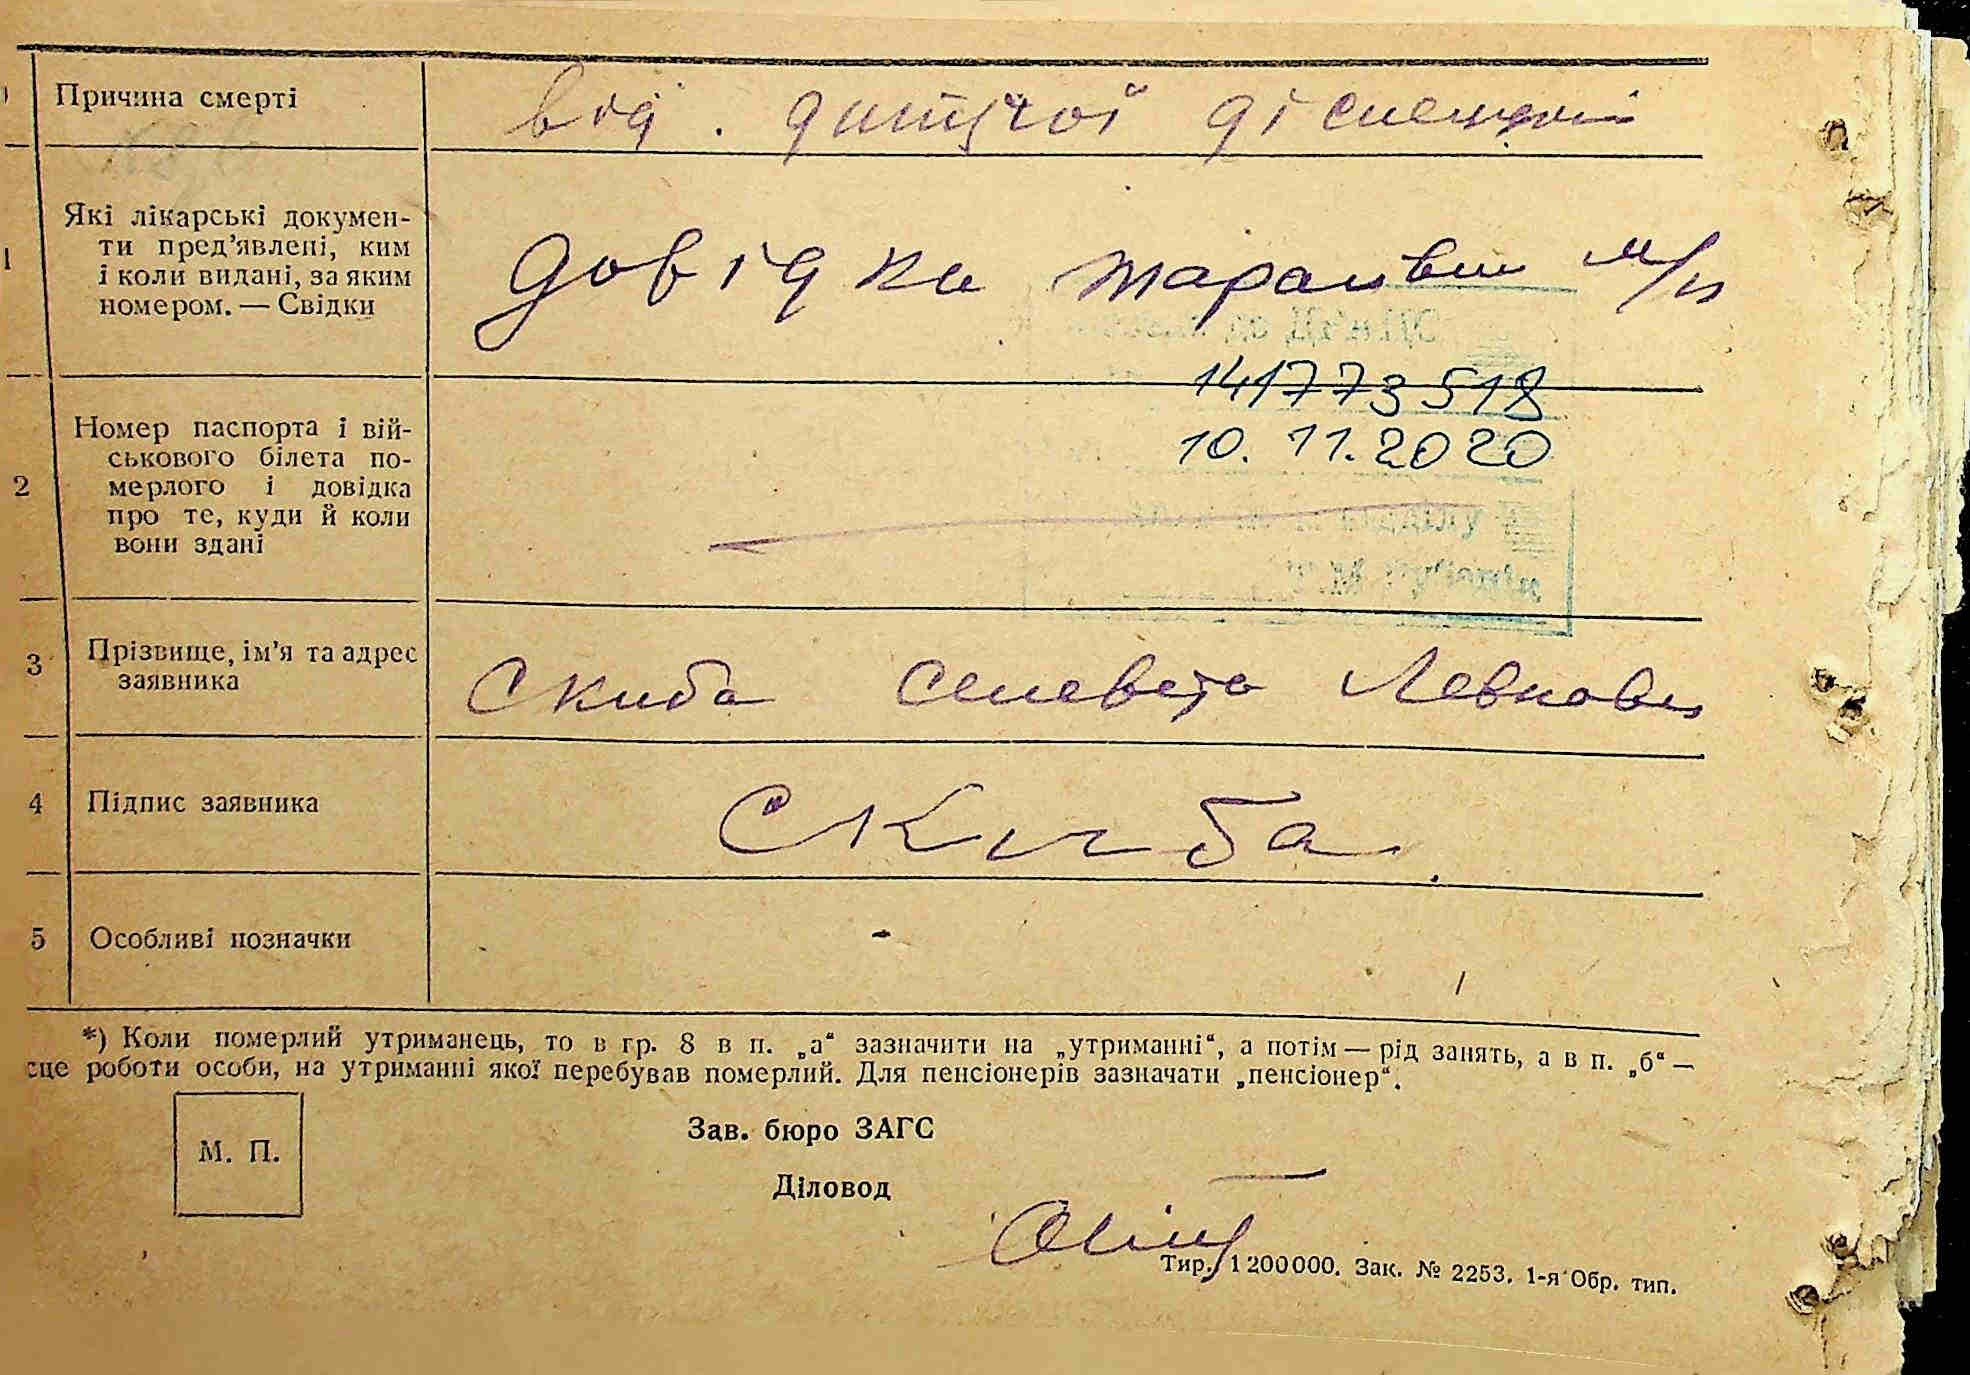 Причина смерті
від. дитячої діспепсіи
1
Які лікарські докумен-
ти пред’явлені, ким
і коли видані, за яким
номером. — Свідки
довідка м/п
141773518
10. 11. 2020
2
Номер паспорта і вій-
ськового білета по-
мерлого і довідка
про те, куди й коли
вони здані
3
Прізвище, ім’я та адрес
заявника
Скиба Селевета Левкова
4
Підпис заявника
Скиба.
5
Особливі позначки
-
*) Коли померлий утриманець, то в гр. 8 в п. „а“ зазначити на „утриманні“, а потім — рід занять, а в п. „б“ —
сце роботи особи, на утриманні якої перебував померлий. Для пенсіонерів зазначати „пенсіонер“.
М. П.
Зав. бюро ЗАГС
Діловод
Тир. 1 200 000. Зак. № 2253. 1-я Обр. тип.